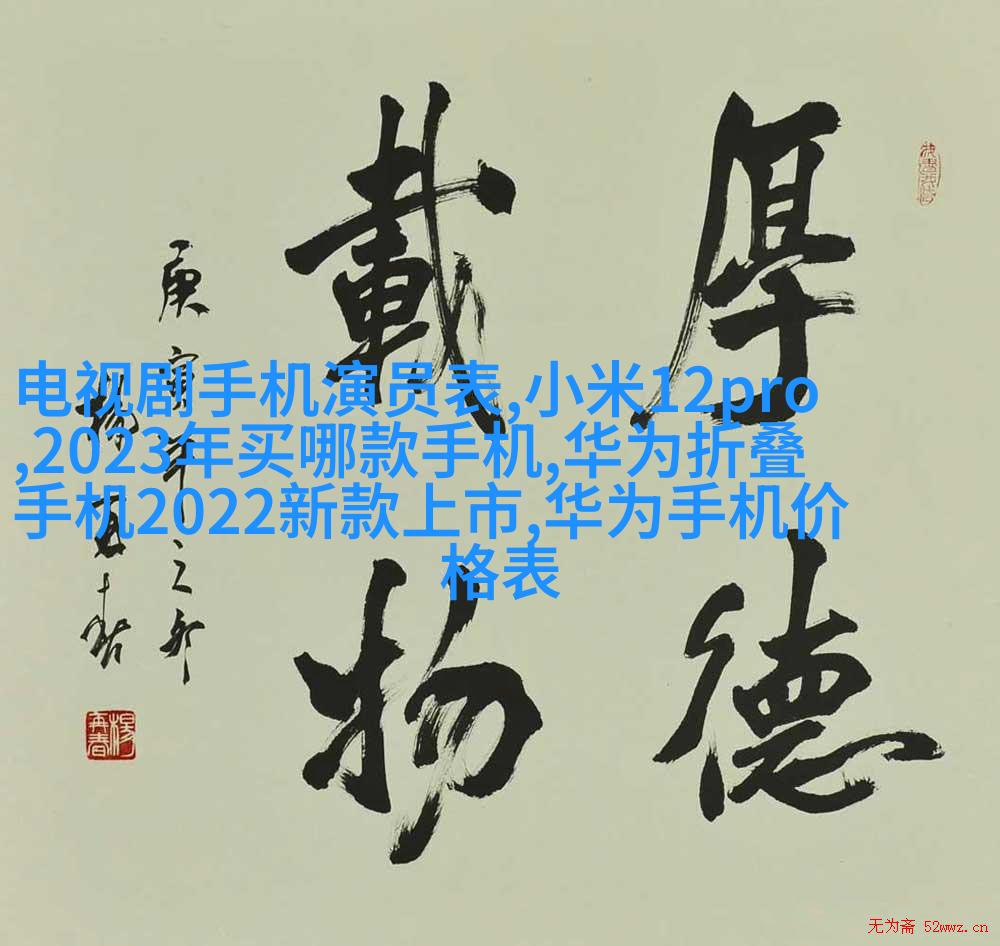 厚德
載物
庚寅年之即
楊再春
楊再春
电视剧手机演员表,小米12pro
,2023年买哪款手机,华为折叠
手机2022新款上市,华为手机价
格表
无为斋 52wwz.cn